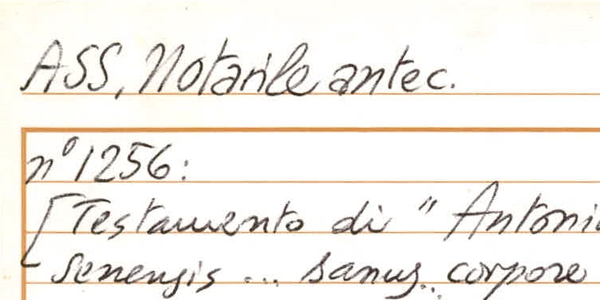 ASS, Notarile antec.
n° 1256:
[Testamento di "Antoni
senensis ... sanus.. corpore